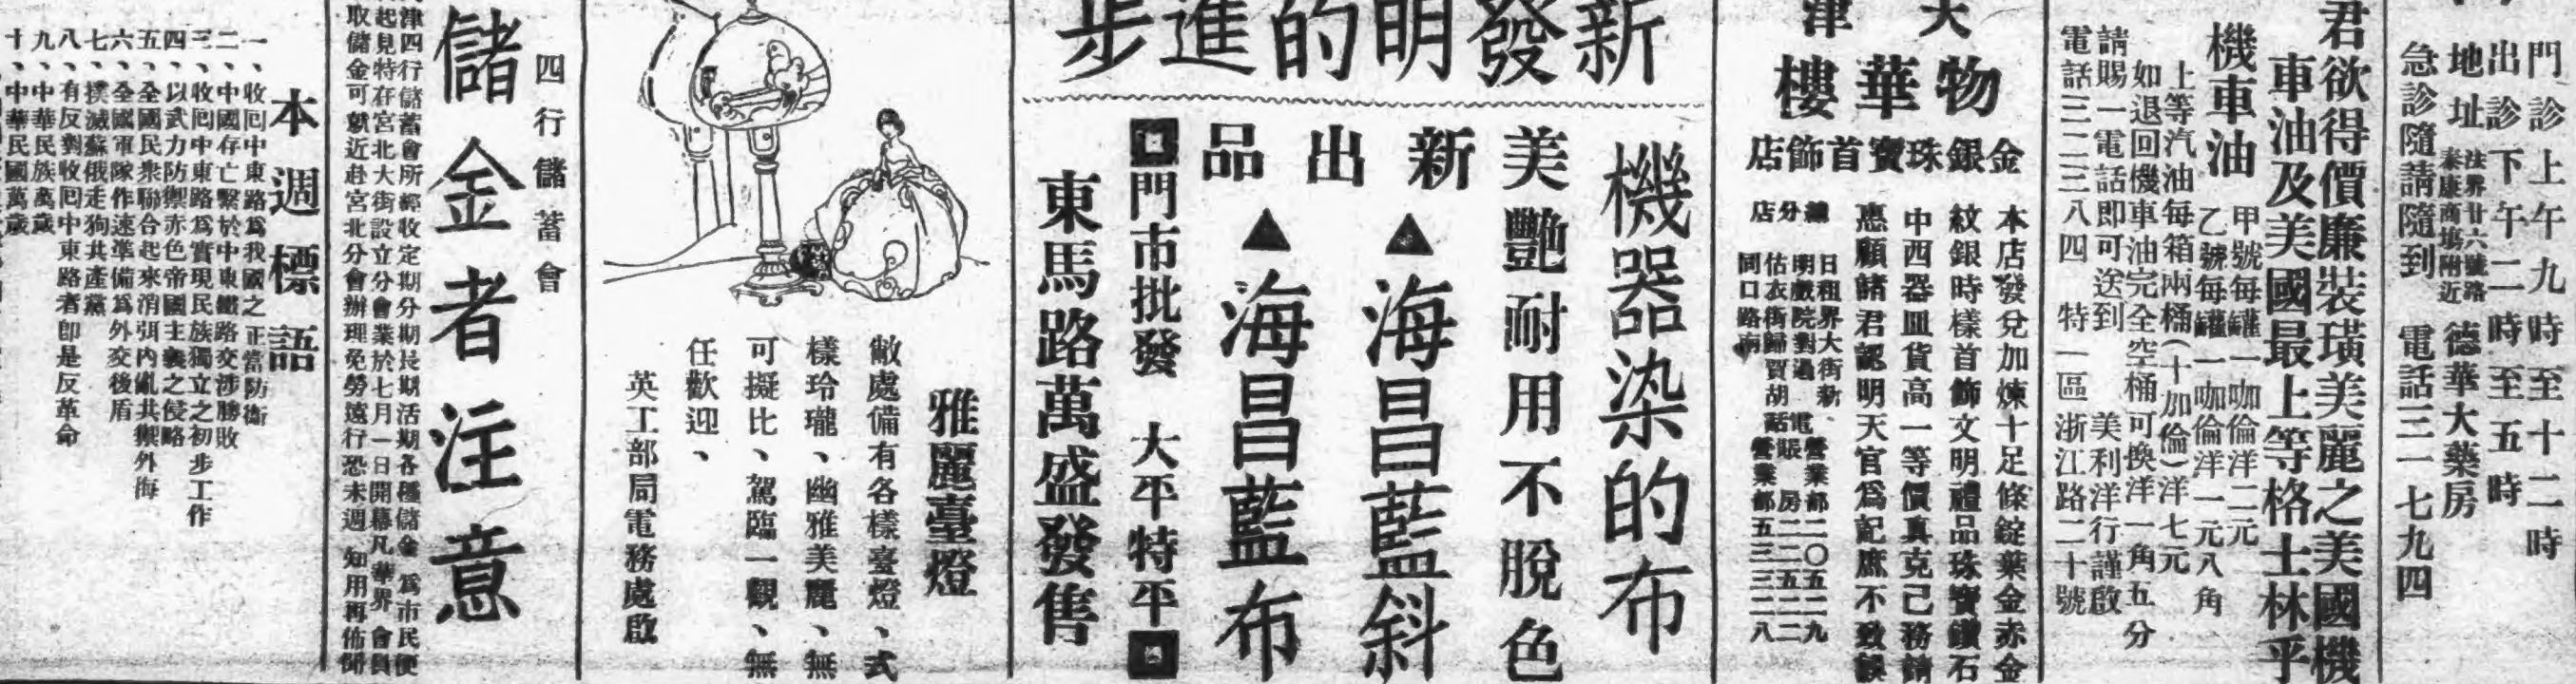 門診上午九時至十二時
出診下午二時至五時
地址
法界廿六號路
泰康商塲附近
德華大藥房
急診隨請隨到 電話三一七九四
君欲得價廉裝璜美麗之美國機
車油及美國最上等格士林乎
機車油
甲號每罐一咖倫洋二元
乙號每罐一咖倫洋一元八角
上等汽油每箱兩桶(十加倫)洋七元
如退回機車油完全空桶可換洋一角五分
請賜一電話即可送到 美利洋行謹啟
電話三二三八四 特一區浙江路二十號
天
津
物華樓
金銀珠寶首飾店
本店發兌加煉十足條錠葉金赤金
紋銀時樣首飾文明禮品珠寶鑽石
中西器皿貨高一等價真克己務請
惠顧諸君認明天官爲記庶不致誤
總 日租界大街新明戲院對過 電話
分店 估衣街歸賈胡同口路南
營業部二〇五二九
賬房二二五二二
營業部五三三二八
新發明的進步
機器染的布
美艷耐用不脫色
新出品
▲海昌藍斜
▲海昌藍布
門市批發 大平特平
東馬路萬盛發售
雅麗臺燈
敝處備有各樣臺燈、式
樣玲瓏、幽雅美麗、無
可擬比、駕臨一觀、無
任歡迎、
英工部局電務處啟
四行儲蓄會
儲金者注意
津四行儲蓄會所經收定期分期長期活期各種儲金 爲市民便
起見特在宮北大街設立分會業於七月一日開幕凡華界 會員
取儲金可就近赴宮北分會辦理免勞遠行恐未週 知用再佈聞
本週標語
一、收回中東路爲我國之正當防衛
二、中國存亡繫於中東鐵路交涉勝敗
三、收回中東路爲實現民族獨立之初步工作
四、以武力防禦赤色帝國主義之侵略
五、全國民衆聯合起來消弭內亂共禦外侮
六、全國軍隊作速準備爲外交後盾
七、撲滅蘇俄走狗共產黨
八、有反對收回中東路者卽是反革命
九、中華民族萬歲
十、中華民國萬歲